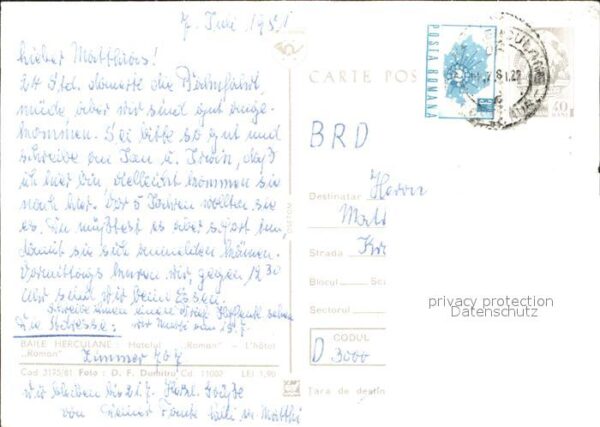 7. Juli 1981
Lieber Matthias!
24 Std. dauerte die Bahnfahrt,
müde aber wir sind gut ange-
kommen. Sei bitte so gut und
schreibe an Jan u. Irwin, daß
ich hier bin, vielleicht kommen sie
nach hier. Vor 5 Jahren wollten sie
es. Du müßtest es aber sofort tun,
damit sie sich anmelden können.
Vormittags kuren wir, gegen 12 30
Uhr sind wir beim Essen.
schreibe ihnen einen Brief
Die Adresse:
BĂILE HERCULANE: Hotelul „Roman” — L'hôtel
„Roman”
Zimmer 707
Cod 3175/81 Foto: D. F. Dumitru Cd. 11002 LEI 1,90
wir bleiben bis 21.7. Herzl. Grüße
von Deiner Tante
CARTE POS
POSTA ROMANA
40
BRD
Destinatar Herrn
Matt
Strada Kr
Blocul Sc
Sectorul
CODUL
D 3000
Țara de destin
privacy protection
Datenschutz